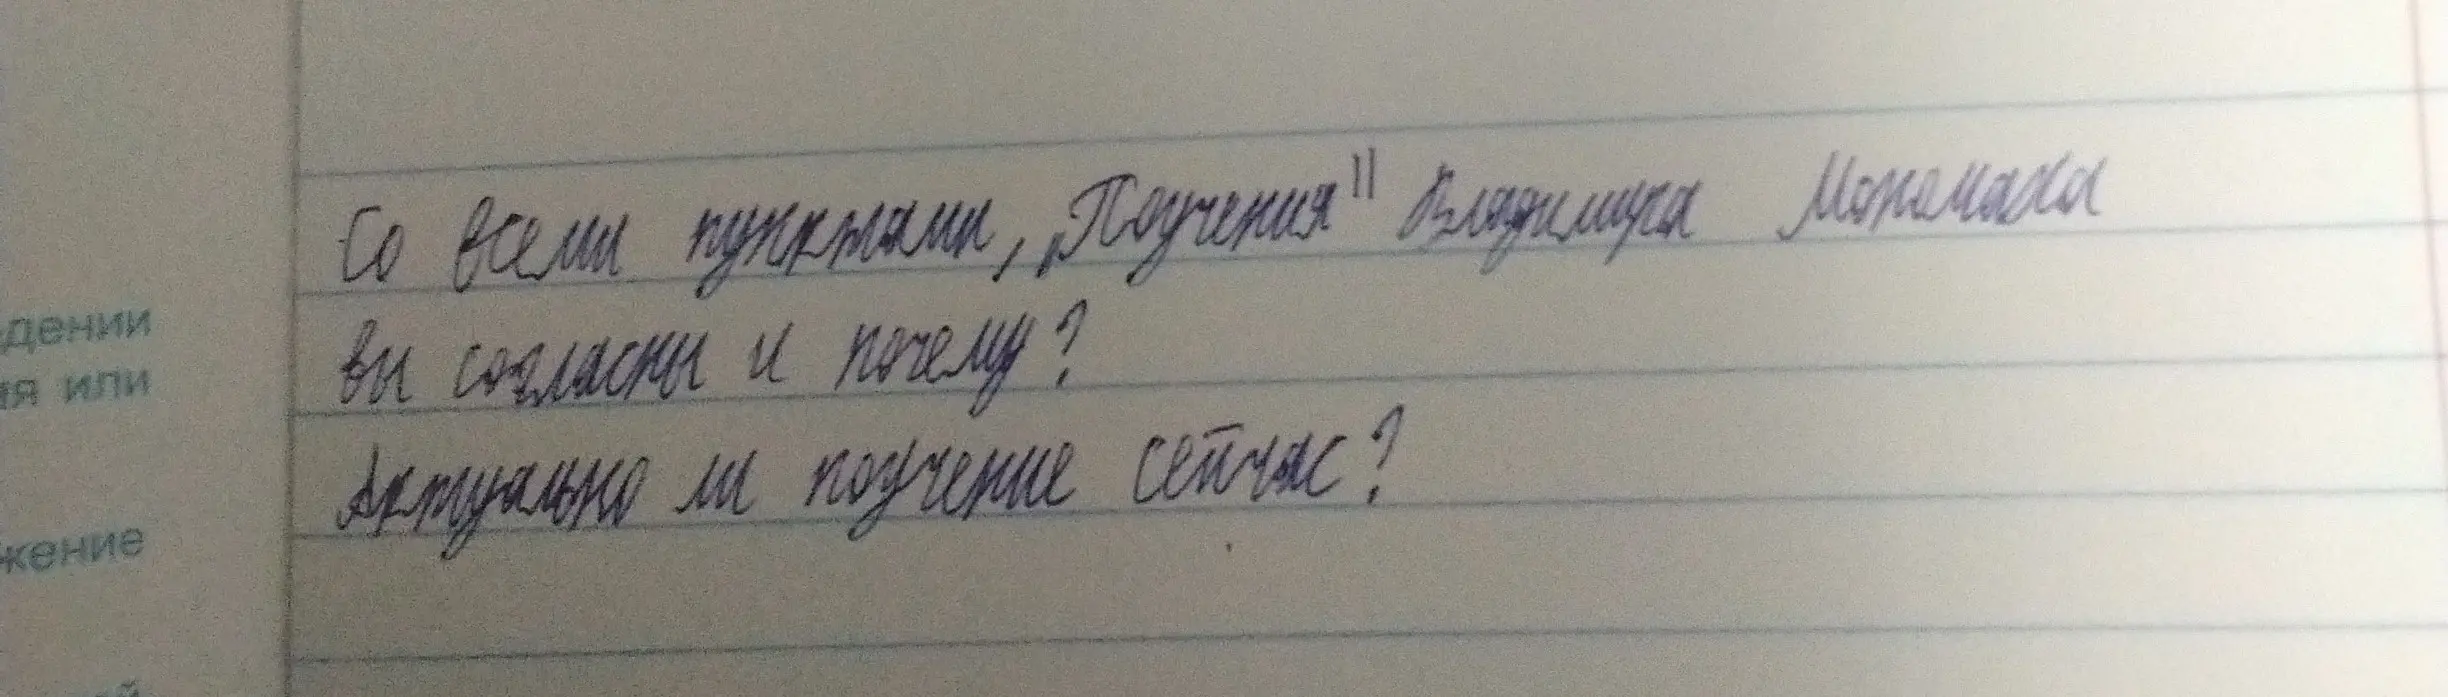 Со всеми пунктами, „Поучения" Владимира Мономаха
вы согласны и почему?
Актуально ли поучение сейчас?
дении
ия или
жение